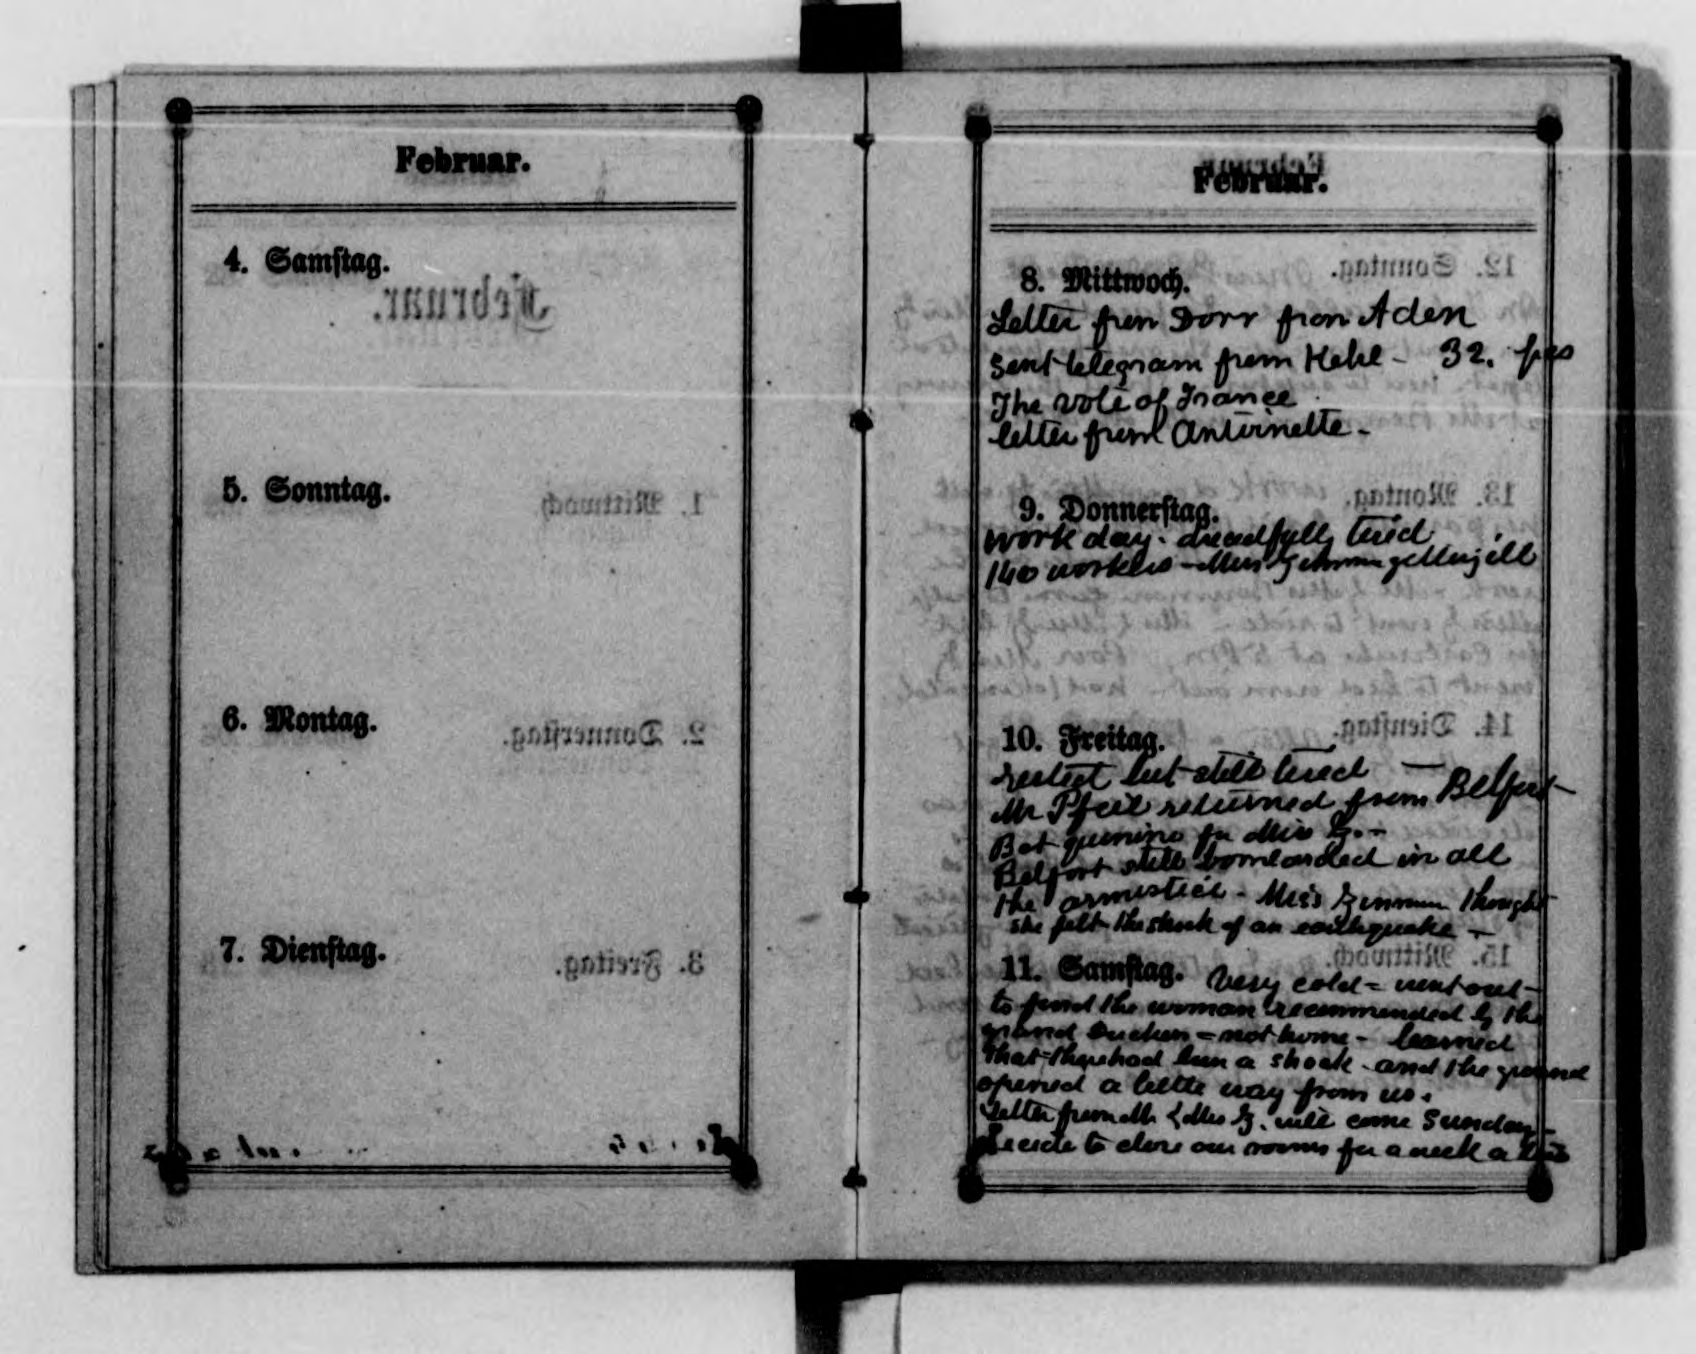 Februar.
4. Samstag.
5. Sonntag.
6. Montag.
7. Dienstag.
Februar.
8. Mittwoch.
Letter from Dorr from Aden
Sent telegram from Kehl - 32.
The vote of France
letter from Antoinette -
9. Donnerstag.
work day. dreadfully tired
140 workers - Miss Zimmerman getting ill
10. Freitag.
rested but still tired —
Mr Pfeil returned from Belfort -
Bot quinine for Miss Z. -
Belfort still bombarded in all
the armistice - Miss Zimmerman thought
she felt the shock of an earthquake -
11. Samstag. Very cold = went out -
to find the woman recommended by the
grand Duchess = not home - learned
that there had been a shock and the ground
opened a little way from us.
Letter from Mr & Mrs Z. will come Sunday -
Decide to close our rooms for a week